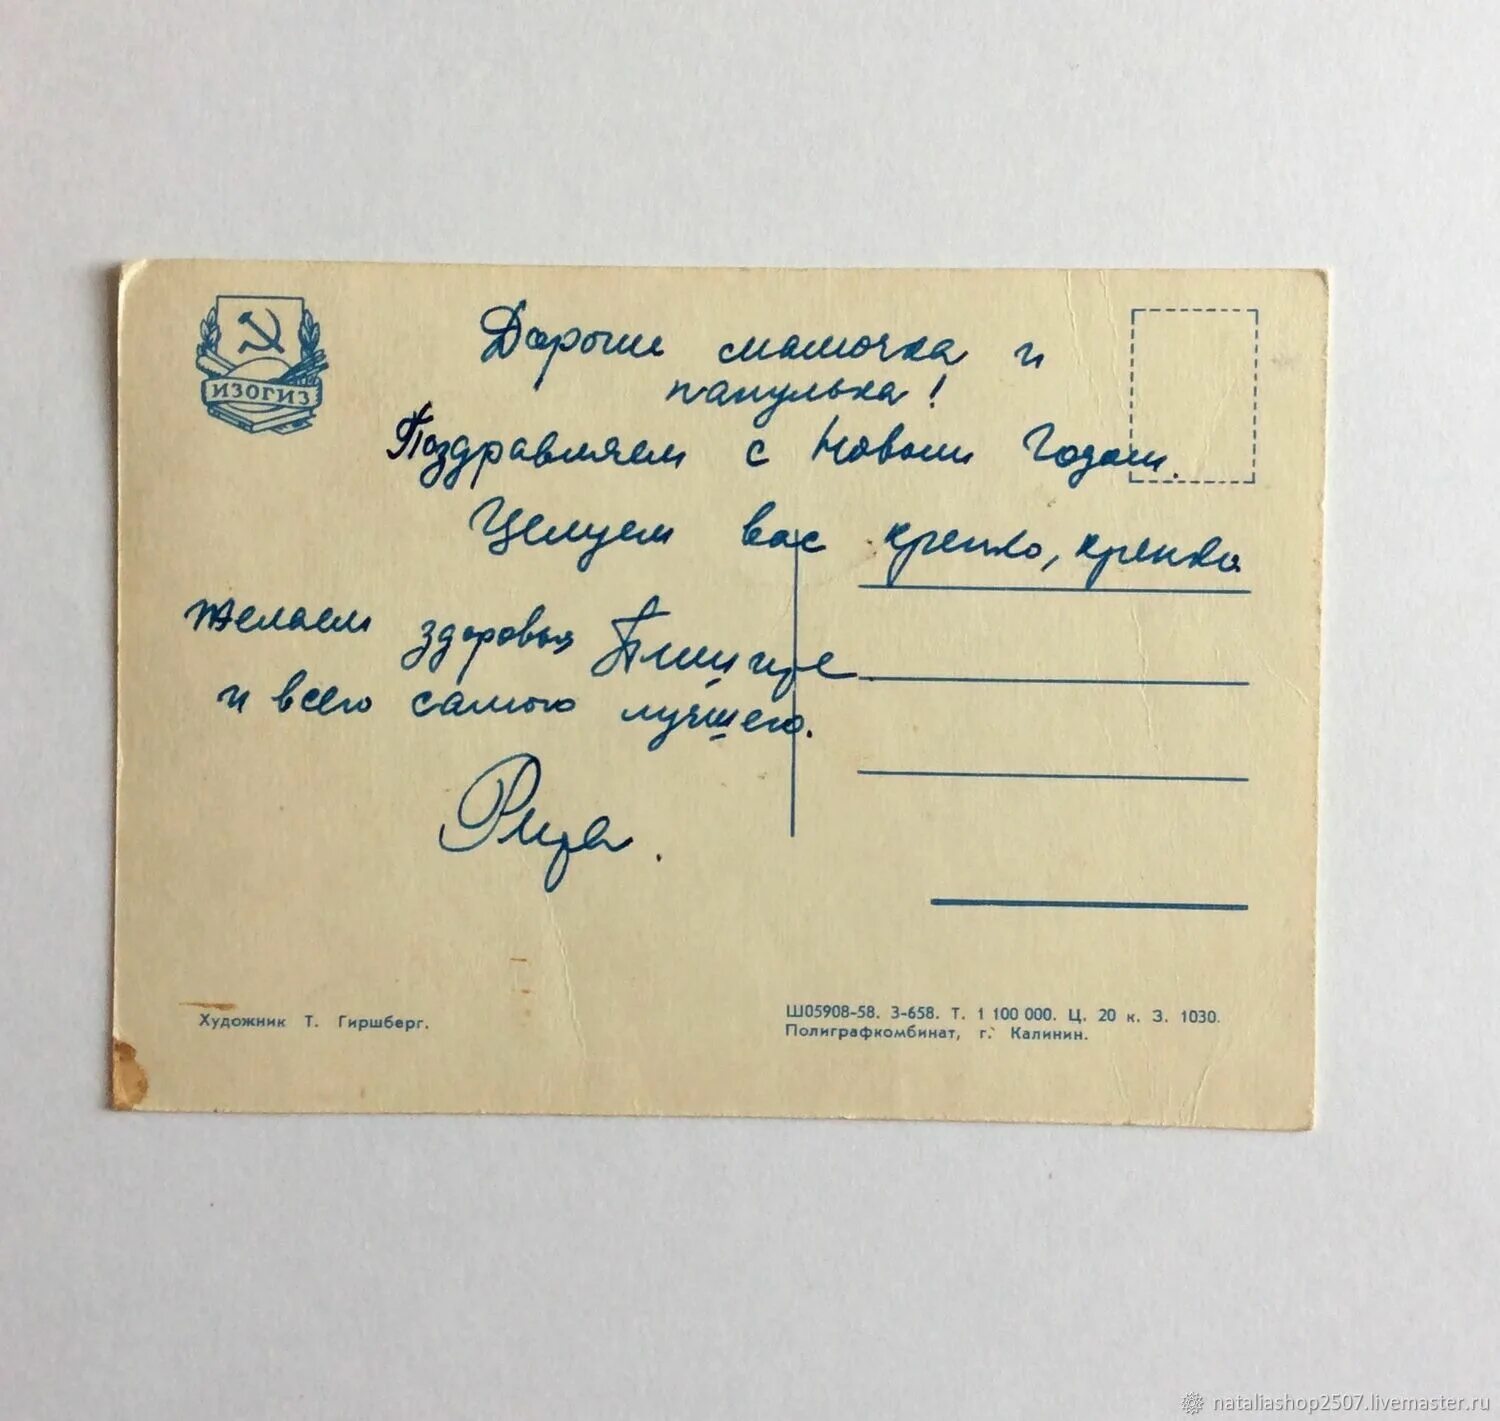 ИЗОГИЗ
Дорогие мамочка и
папулька!
Поздравляем с Новым Годом.
Целуем вас крепко, крепко
желаем здоровья
и всего самого лучшего.
Художник Т. Гиршберг.
Ш05908-58. З-658. Т. 1 100 000. Ц. 20 к. З. 1030.
Полиграфкомбинат, г. Калинин.
nataliashop2507.livemaster.ru